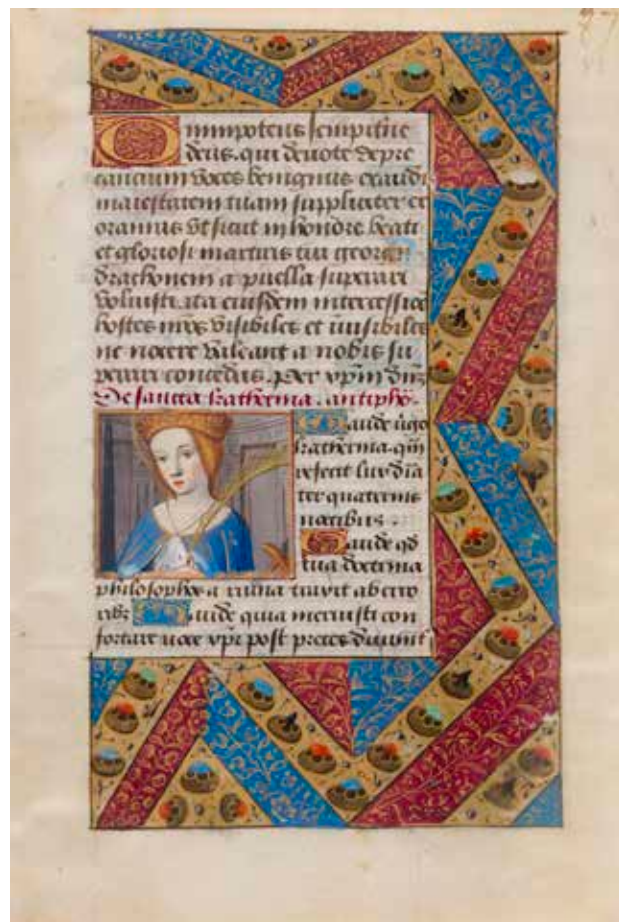 87
Omnipotens sempiterne
deus. qui devote depre
cancium voces benignus exaudis
maiestatem tuam suppliciter ex
oramus ut sicut in honore beati
et gloriosi martiris tui georgii
drachonem a puella superari
voluisti. ita eiusdem intercessione
hostes meos visibiles et invisibiles
ne nocere valeant a nobis su
perari concedas. Per xpm dnm
De sancta Katherina. antipho.
Gaude virgo
katherina. qua
refecit lux dia
ter quaternis
noctibus.
Gaude qd
tua doctrina
philosophos a ruina traxit ab erro
ribus Gaude quia meruisti con
fortare uxore post preces